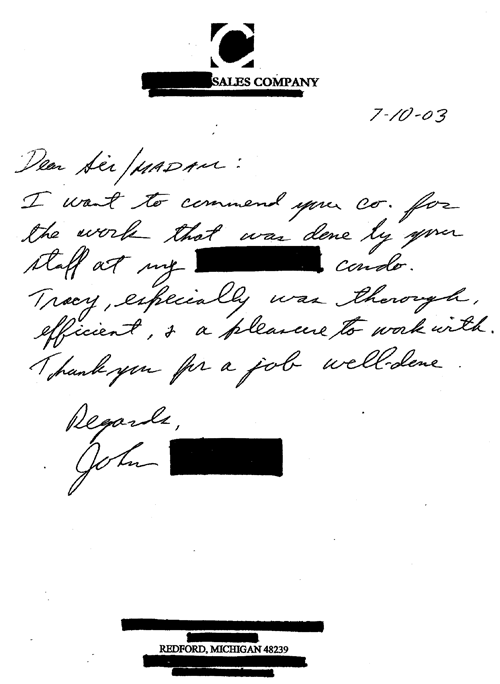 C
SALES COMPANY
7-10-03
Dear Sir/MADAM:
I want to commend your co. for
the work that was done by your
staff at my condo.
Tracy, especially was thorough,
efficient, & a pleasure to work with.
Thank you for a job well-done.
Regards,
John
REDFORD, MICHIGAN 48239